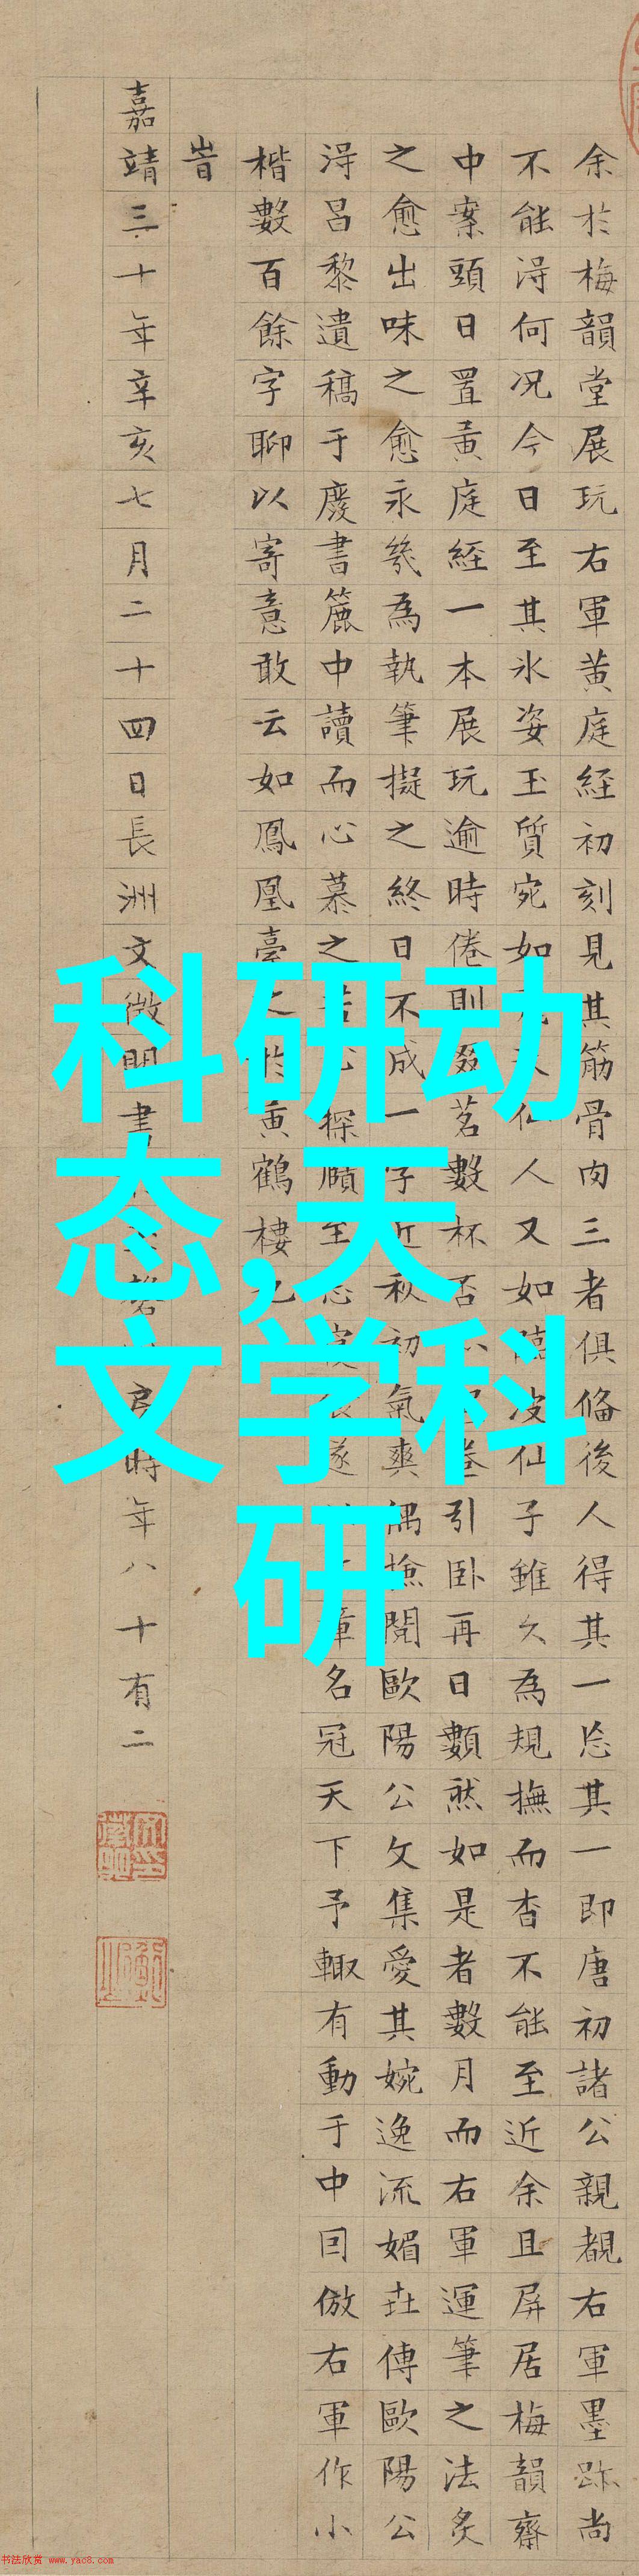 余於梅韻堂展玩右軍黄庭経初刻見其筋骨肉三者俱偹後人得其一忘其一即唐初諸公親覩右軍墨跡尚
不能淂何况今日至其氷姿玉質宛如仙人又如臨波仙子雖久為規撫而杳不能至近余且屏居梅韻齋
中案頭日置黄庭経一本展玩逾時倦則啜茗數杯否引卧再日數然如是者數月而右軍運筆之法炙
之愈出味之愈永幾為執筆擬之終日不成一字近秋初氣爽偶撿閱歐陽公文集愛其婉逸流媚世傳歐陽公
淂昌黎遺稿于廢書簏中讀而心慕之苦心探賾至忘寢食遂章名冠天下予輙有動于中囙倣右軍作小
楷數百餘字聊以寄意敢云如鳳凰臺之於黄鶴樓也
旹
嘉靖三十年辛亥七月二十四日長洲文徴明書時年八十有二
科研动
态,天
文学科
研
书法欣赏 www.yac8.com